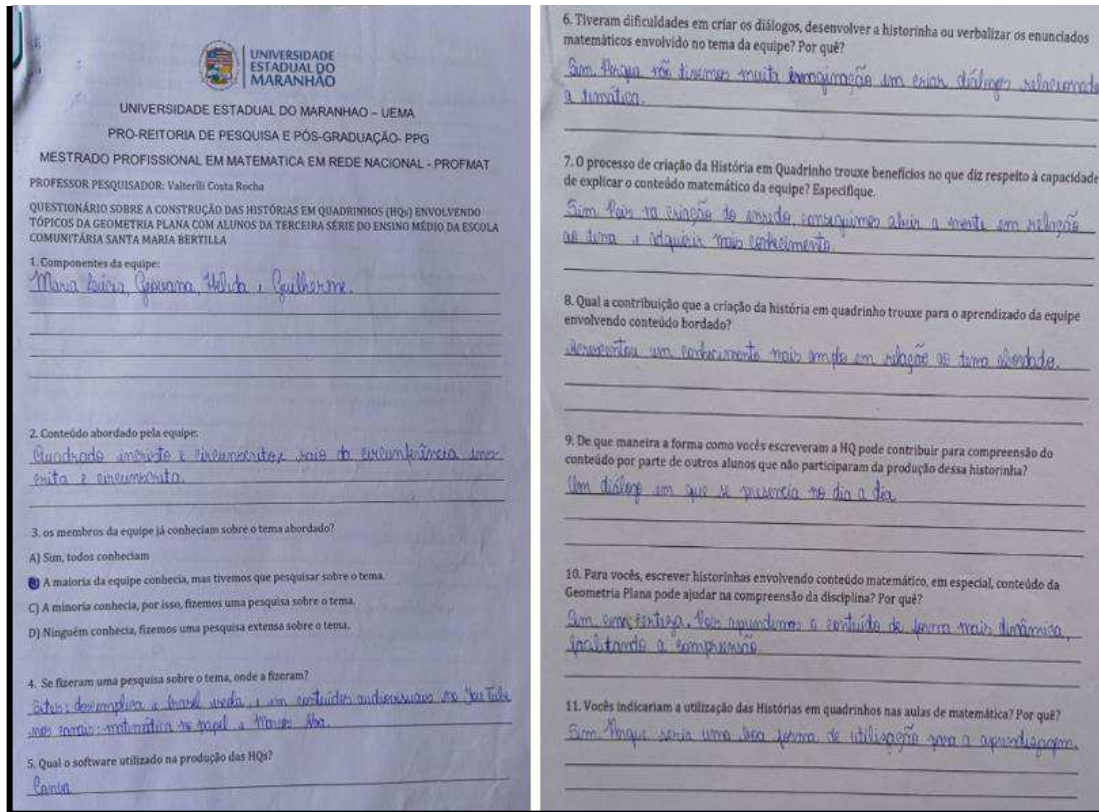 UNIVERSIDADE
ESTADUAL DO
MARANHÃO
UNIVERSIDADE ESTADUAL DO MARANHAO – UEMA
PRO-REITORIA DE PESQUISA E PÓS-GRADUAÇÃO- PPG
MESTRADO PROFISSIONAL EM MATEMATICA EM REDE NACIONAL - PROFMAT
PROFESSOR PESQUISADOR: Valterlli Costa Rocha
QUESTIONÁRIO SOBRE A CONSTRUÇÃO DAS HISTÓRIAS EM QUADRINHOS (HQs) ENVOLVENDO
TÓPICOS DA GEOMETRIA PLANA COM ALUNOS DA TERCEIRA SÉRIE DO ENSINO MÉDIO DA ESCOLA
COMUNITÁRIA SANTA MARIA BERTILLA
1. Componentes da equipe:
Maria Lúcia, Geovana, Helida e Guilherme.
2. Conteúdo abordado pela equipe:
Quadrado inscrito e circunscrito, raio da circunferência ins-
crita e circunscrita.
3. os membros da equipe já conheciam sobre o tema abordado?
A) Sim, todos conheciam
A maioria da equipe conhecia, mas tivemos que pesquisar sobre o tema.
C) A minoria conhecia, por isso, fizemos uma pesquisa sobre o tema.
D) Ninguém conhecia, fizemos uma pesquisa extensa sobre o tema.
4. Se fizeram uma pesquisa sobre o tema, onde a fizeram?
Sites: descomplica e brasil escola, e em conteúdos audiovisuais no YouTube
nos canais: matemática no papel e Marcos Aba.
5. Qual o software utilizado na produção das HQs?
Canva
6. Tiveram dificuldades em criar os diálogos, desenvolver a historinha ou verbalizar os enunciados
matemáticos envolvido no tema da equipe? Por quê?
Sim. Porque não tivemos muita immaginação em criar diálogos relacionado
a temática.
7. O processo de criação da História em Quadrinho trouxe benefícios no que diz respeito à capacidade
de explicar o conteúdo matemático da equipe? Especifique.
Sim. Pois na criação do enredo conseguimos abrir a mente em relação
ao tema e adquirir mais conhecimento.
8. Qual a contribuição que a criação da história em quadrinho trouxe para o aprendizado da equipe
envolvendo conteúdo bordado?
Acrescentou um conhecimento mais amplo em relação ao tema abordado.
9. De que maneira a forma como vocês escreveram a HQ pode contribuir para compreensão do
conteúdo por parte de outros alunos que não participaram da produção dessa historinha?
Um diálogo em que se presencia no dia a dia
10. Para vocês, escrever historinhas envolvendo conteúdo matemático, em especial, conteúdo da
Geometria Plana pode ajudar na compreensão da disciplina? Por quê?
Sim com certeza. Pois aprendemos o conteúdo de forma mais dinâmica,
facilitando a compreensão
11. Vocês indicariam a utilização das Histórias em quadrinhos nas aulas de matemática? Por quê?
Sim. Porque seria uma boa forma de utilização para a aprendizagem.